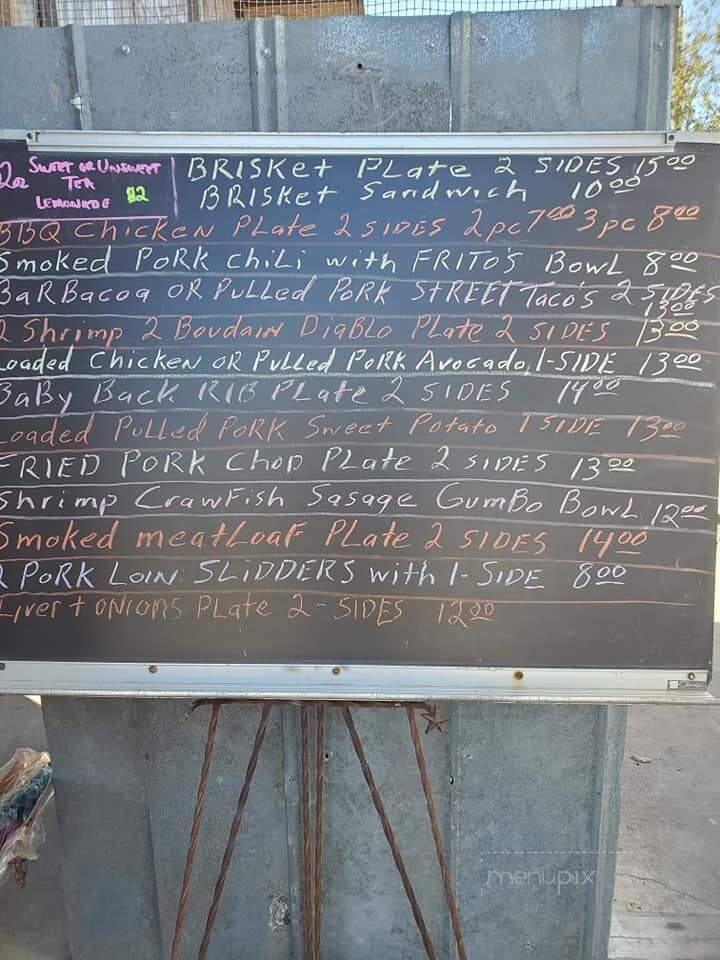 SWEET OR UNSWEET
TEA
LEMONADE $2
BRISKet PLate 2 SIDES 15⁰⁰
BRISKet Sandwich 10⁰⁰
BBQ ChicKen PLate 2 SIDES 2pc 7⁰⁰ 3pc 8⁰⁰
Smoked PoRK ChiLi with FRITO'S BowL 8⁰⁰
BaRBacoa OR PuLLed PoRK StREET Taco's 2 SIDES
13⁰⁰
2 Shrimp 2 Boudain DiaBLo PLate 2 SIDES 13⁰⁰
Loaded ChicKen OR PuLLed PoRK Avocado, 1-SIDE 13⁰⁰
BaBy Back RIB PLate 2 SIDES 14⁰⁰
Loaded PuLLed PoRK Sweet Potato 1 SIDE 13⁰⁰
FRIED PoRK Chop PLate 2 SIDES 13⁰⁰
Shrimp CrawFish Sasage GumBo BowL 12⁰⁰
Smoked meatLoaF PLate 2 SIDES 14⁰⁰
2 PoRK LOIN SLIDDERS with 1-SIDE 8⁰⁰
Liver + ONIONS PLate 2-SIDES 12⁰⁰
menupix